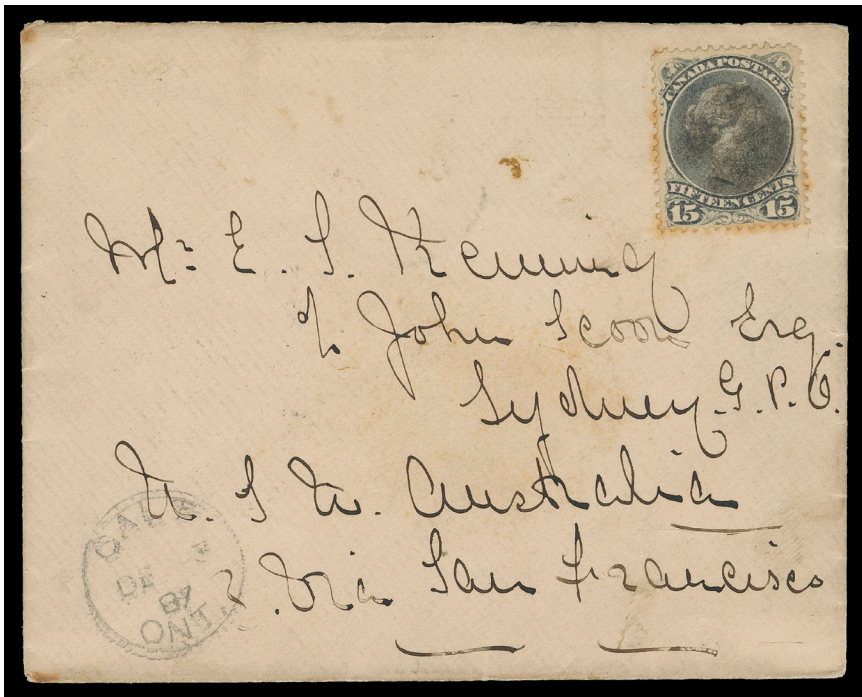 CANADA POSTAGE
FIFTEEN CENTS
15 15
Mr. E. S.
c/o John Esq.
Sydney. G. P. O.
N. S W. Australia
Via San Francisco
GALT
DE 3
87
ONT.